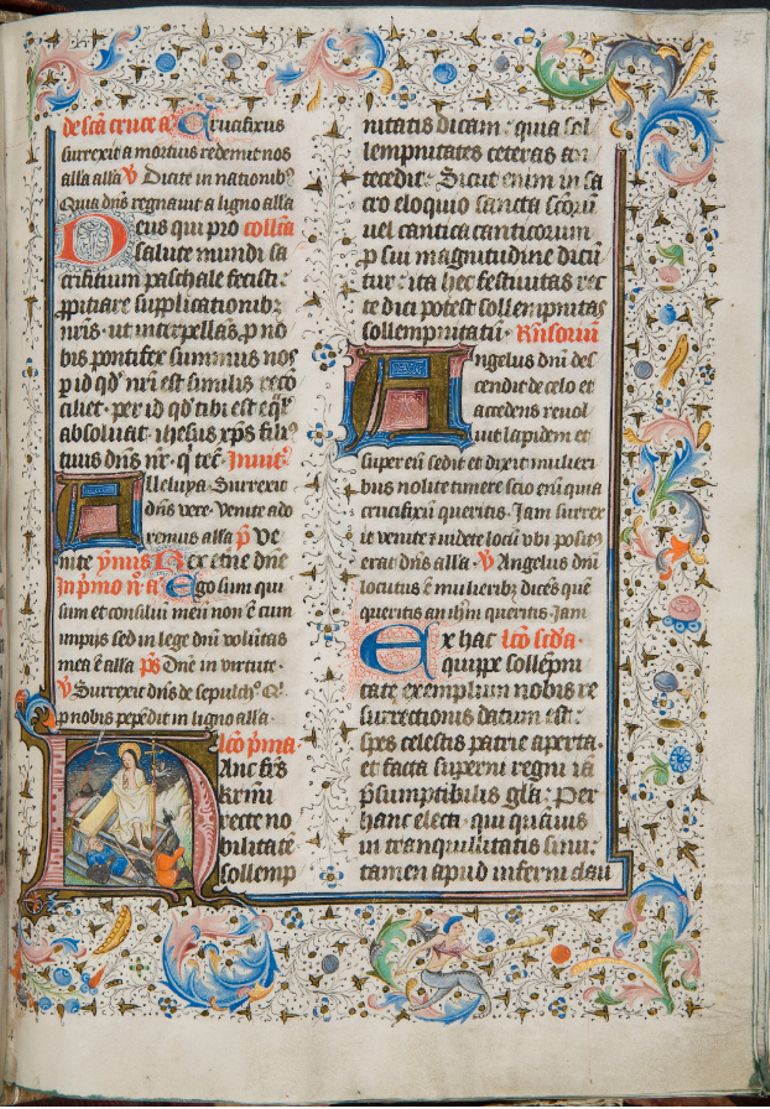 de scā cruce a Crucifixus
surrexit a mortuis redemit nos
alla alla ℣ Dicite in nationib⁹
Quia dn̄s regnauit a ligno alla
Deus qui pro collc̄a
salute mundi sa
crificium paschale fecisti :
ꝓpitiare supplicationibꝫ
nr̄is · ut interpellās ꝓ no
bis pontifex summus nos
ꝑ id qd' nr̄i est similis recō
ciliet · per id qd' tibi est eq̄l'
absoluat · ihesus xp̄s fili⁹
tuus dn̄s nr̄ · q' tec̄ · Inuit'
Alleluya · Surrexit
dn̄s vere · Venite ado
remus alla p̄ Ve
nite ymnus Rex et'ne dn̄e
In p'mo n̄ · a Ego sum qui
sum et consiliū meū non ē cum
impijs sed in lege dn̄i volūtas
mea ē alla p̄s Dn̄e in virtute ·
℣ Surrexit dn̄s de sepulch° Q'
ꝓ nobis pepēdit in ligno alla ·
lc̄o p'ma ·
Hanc fr̄s
kr̄mi
recte no
bilitatē
sollemp
nitatis dicam : quia sol
lempnitates ceteras an
tecedit : Sicut enim in sa
cro eloquio sancta sc̄orū
uel cantica canticorum
ꝑ sui magnitudine dicū
tur : ita hec festiuitas rec
te dici potest sollempnitas
sollempnitatū · Rn̄soriū
Angelus dn̄i des
cendit de celo et
accedens reuol
uit lapidem et
super eū sedit et dixit mulieri
bus nolite timere scio enī quia
crucifixū queritis · Jam surrex
it venite ⁊ uidete locū vbi posit⁹
erat dn̄s alla · ℣ Angelus dn̄i
locutus ē mulieribꝫ dicēs quē
queritis an ih̄m queritis · Jam
Ex hac lc̄o sc̄da ·
quippe sollēpni
tate exemplum nobis re
surrectionis datum est :
spes celestis patrie aperta ·
et facta superni regni iā
p̄sumptibilis gl̄a : Per
hanc electi · qui quāuis
in tranquillitatis sinu ·
tamen apud inferni clau
75